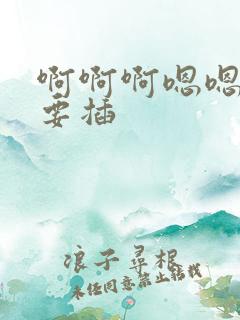 啊啊啊嗯嗯
要插
浪子寻根
未经同意禁止转载